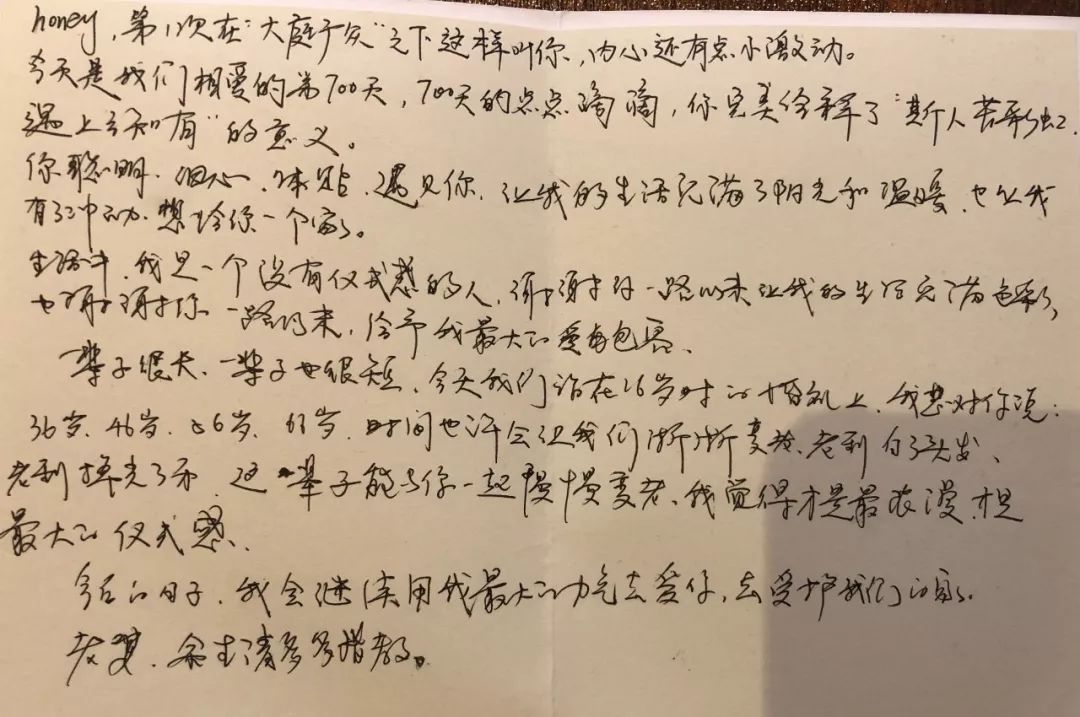 honey，第1次在“大庭广众”之下这样叫你，内心还有点小激动。
今天是我们相爱的第700天，700天的点点滴滴，你完美诠释了“斯人若彩虹，
遇上方知有”的意义。
你聪明、细心、体贴，遇见你，让我的生活充满了阳光和温暖，也让我
有了冲动，想给你一个家。
生活中，我是一个没有仪式感的人，谢谢你一路以来让我的生活充满色彩，
也谢谢你一路以来，给予我最大的爱与包容、
一辈子很长、一辈子也很短，今天我们站在26岁时的婚礼上，我想对你说：
36岁、46岁、56岁、 时间也许会让我们渐渐变老、老到白了头发、
老到掉光了牙，这一辈子能与你一起慢慢变老、我觉得才是最浪漫，才是
最大的仪式感、
今后的日子，我会继续用我最大的力气去爱你，去爱护我们的家。
老婆，余生请多多指教。